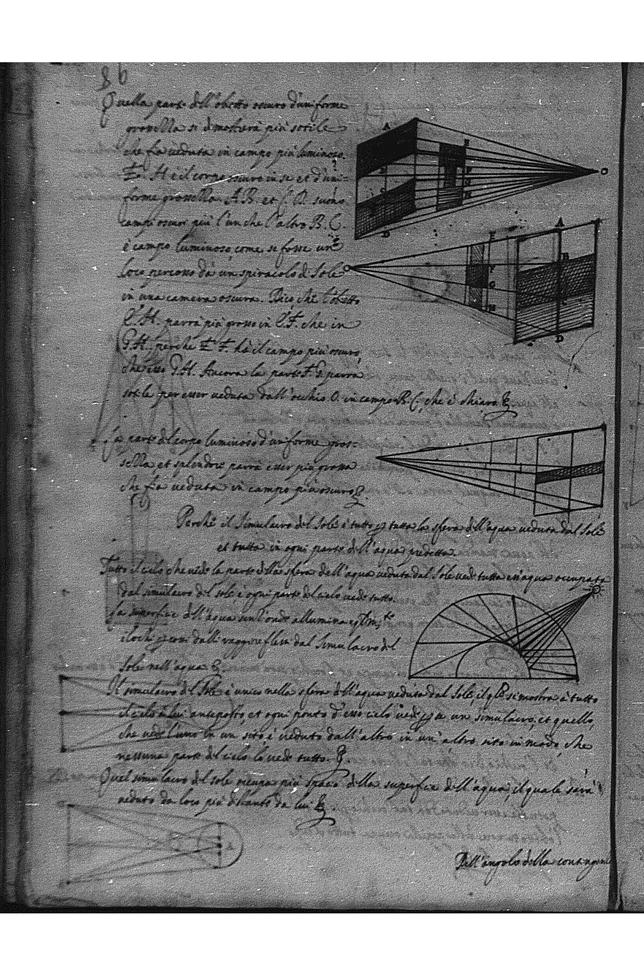 86
Quella parte dell'obietto oscuro d'uniforme
grossella si dimostrerà più sottile
che fia veduta in campo più luminoso.
E. H. è il corpo oscuro in se et d'uni-
forme grossella. A.B. et C.D. sono
campi oscuri più l'un che l'altro B.C.
è campo luminoso come se fosse un
loco percosso da un spiracolo di Sole
in una camera oscura. Dico che l'obietto
E.H. parrà più grosso in E.F. che in
G.H. perche E.F. hà il campo più oscuro
che esso G.H. Ancora la parte F.G. parrà
sottile per esser veduta dall'occhio O. in campo B.C. che è chiaro
La parte del corpo luminoso d'uniforme gros-
sella et splendore parrà esser più grossa
che fia veduta in campo più oscuro
Perche il simulacro del Sole è tutto per tutta la sfera dell'aqua veduta dal Sole
et tutto in ogni parte dell'aqua predetta.
Tutto il cielo che vede la parte della sfera dell'aqua veduta dal Sole vede tutta essa aqua occupata
dal simulacro del sole e ogni parte del cielo vede tutto.
La superficie dell'aqua senz'onde allumina
i lochi dalli raggi reflessi dal Simulacro del
Sole nell'aqua
Il simulacro del Sole è unico nella sfera dell'aqua veduta dal Sole, il qle si mostra à tutto
il cielo à lui anteposto et ogni ponto d'esso cielo vede un simulacro, et quello,
che vede l'uno in un sito è veduto dall'altro in un'altro sito in modo, che
nessuna parte del cielo lo vede tutto.
Quel simulacro del sole occupa più spacio della superficie dell'aqua, il quale sarà
veduto da loco più distante da lui
Dell'angolo della contingentia
A
B
C
D
E
F
G
H
O